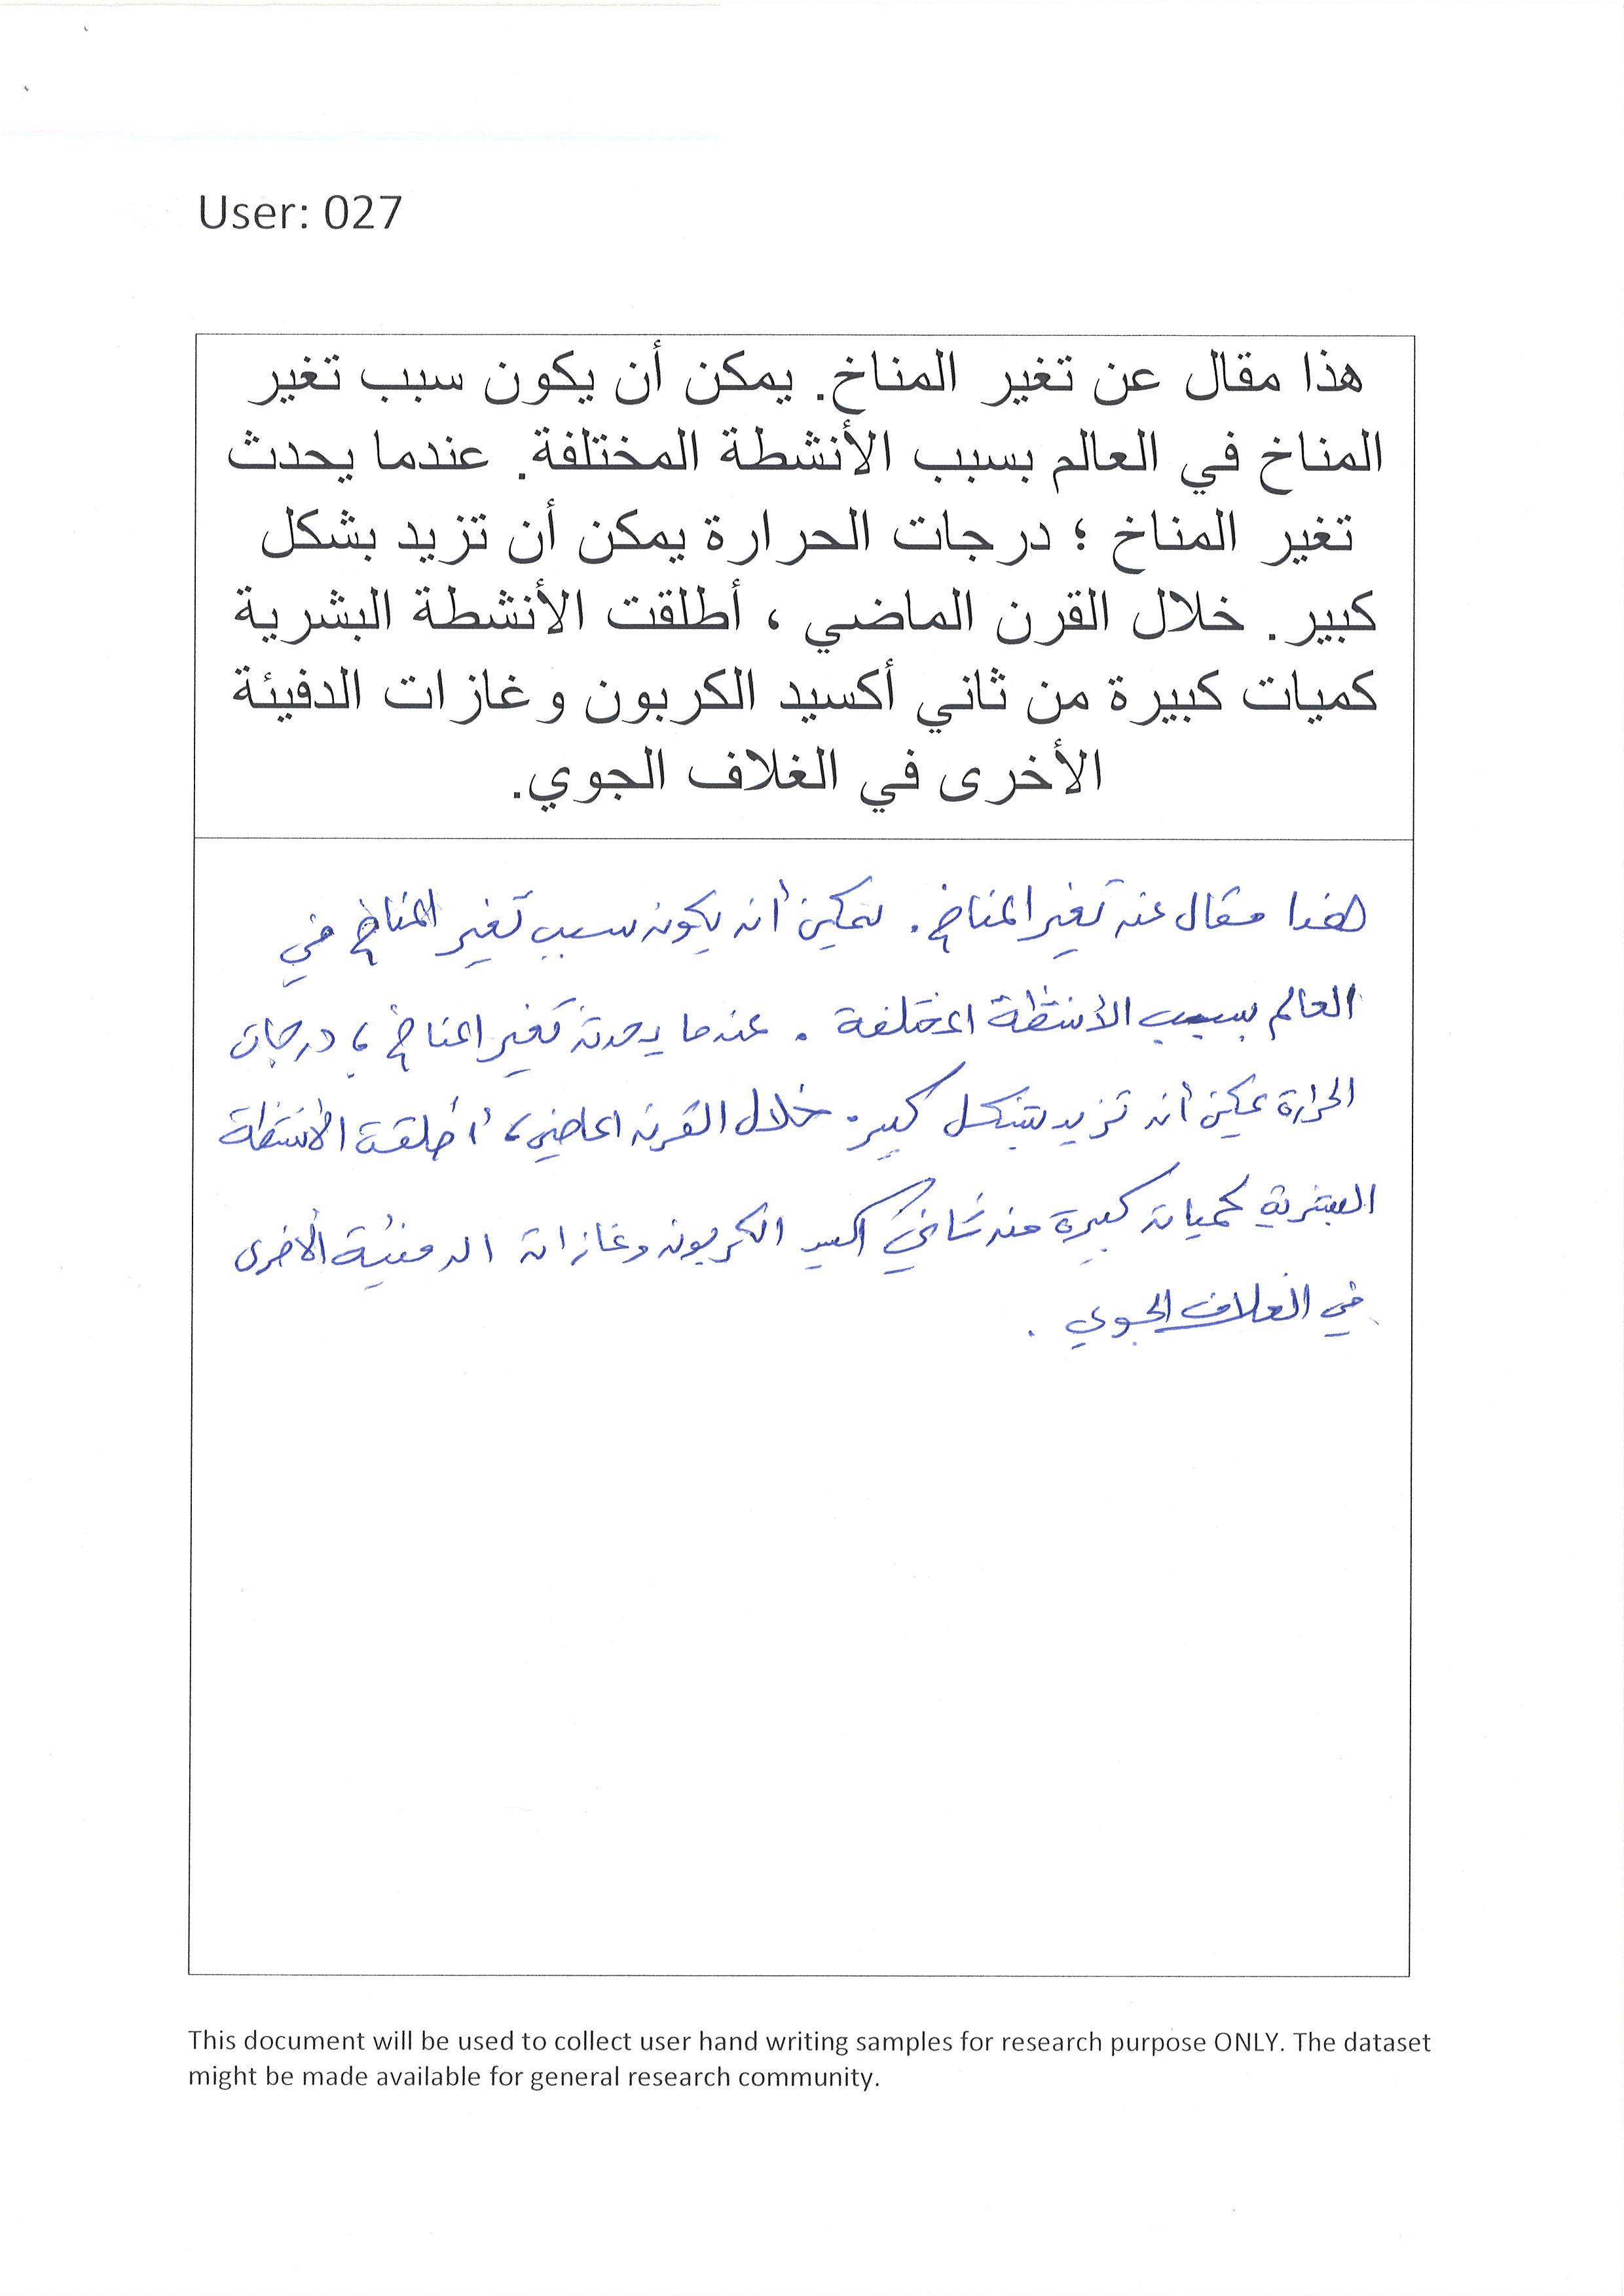 User: 027
هذا مقال عن تغير المناخ. يمكن أن يكون سبب تغير
المناخ في العالم بسبب الأنشطة المختلفة. عندما يحدث
تغير المناخ ؛ درجات الحرارة يمكن أن تزيد بشكل
كبير. خلال القرن الماضي ، أطلقت الأنشطة البشرية
كميات كبيرة من ثاني أكسيد الكربون وغازات الدفيئة
الأخرى في الغلاف الجوي.
هذا مقال عن تغير المناخ. يمكن أن يكون سبب تغير المناخ في
العالم بسبب الأنشطة المختلفة . عندما يحدث تغير المناخ ؛ درجات
الحرارة يمكن أن تزيد بشكل كبير. خلال القرن الماضي ، أطلقت الأنشطة
البشرية كميات كبيرة من ثاني اكسيد الكربون وغازات الدفيئة الأخرى
في الغلاف الجوي .
This document will be used to collect user hand writing samples for research purpose ONLY. The dataset
might be made available for general research community.